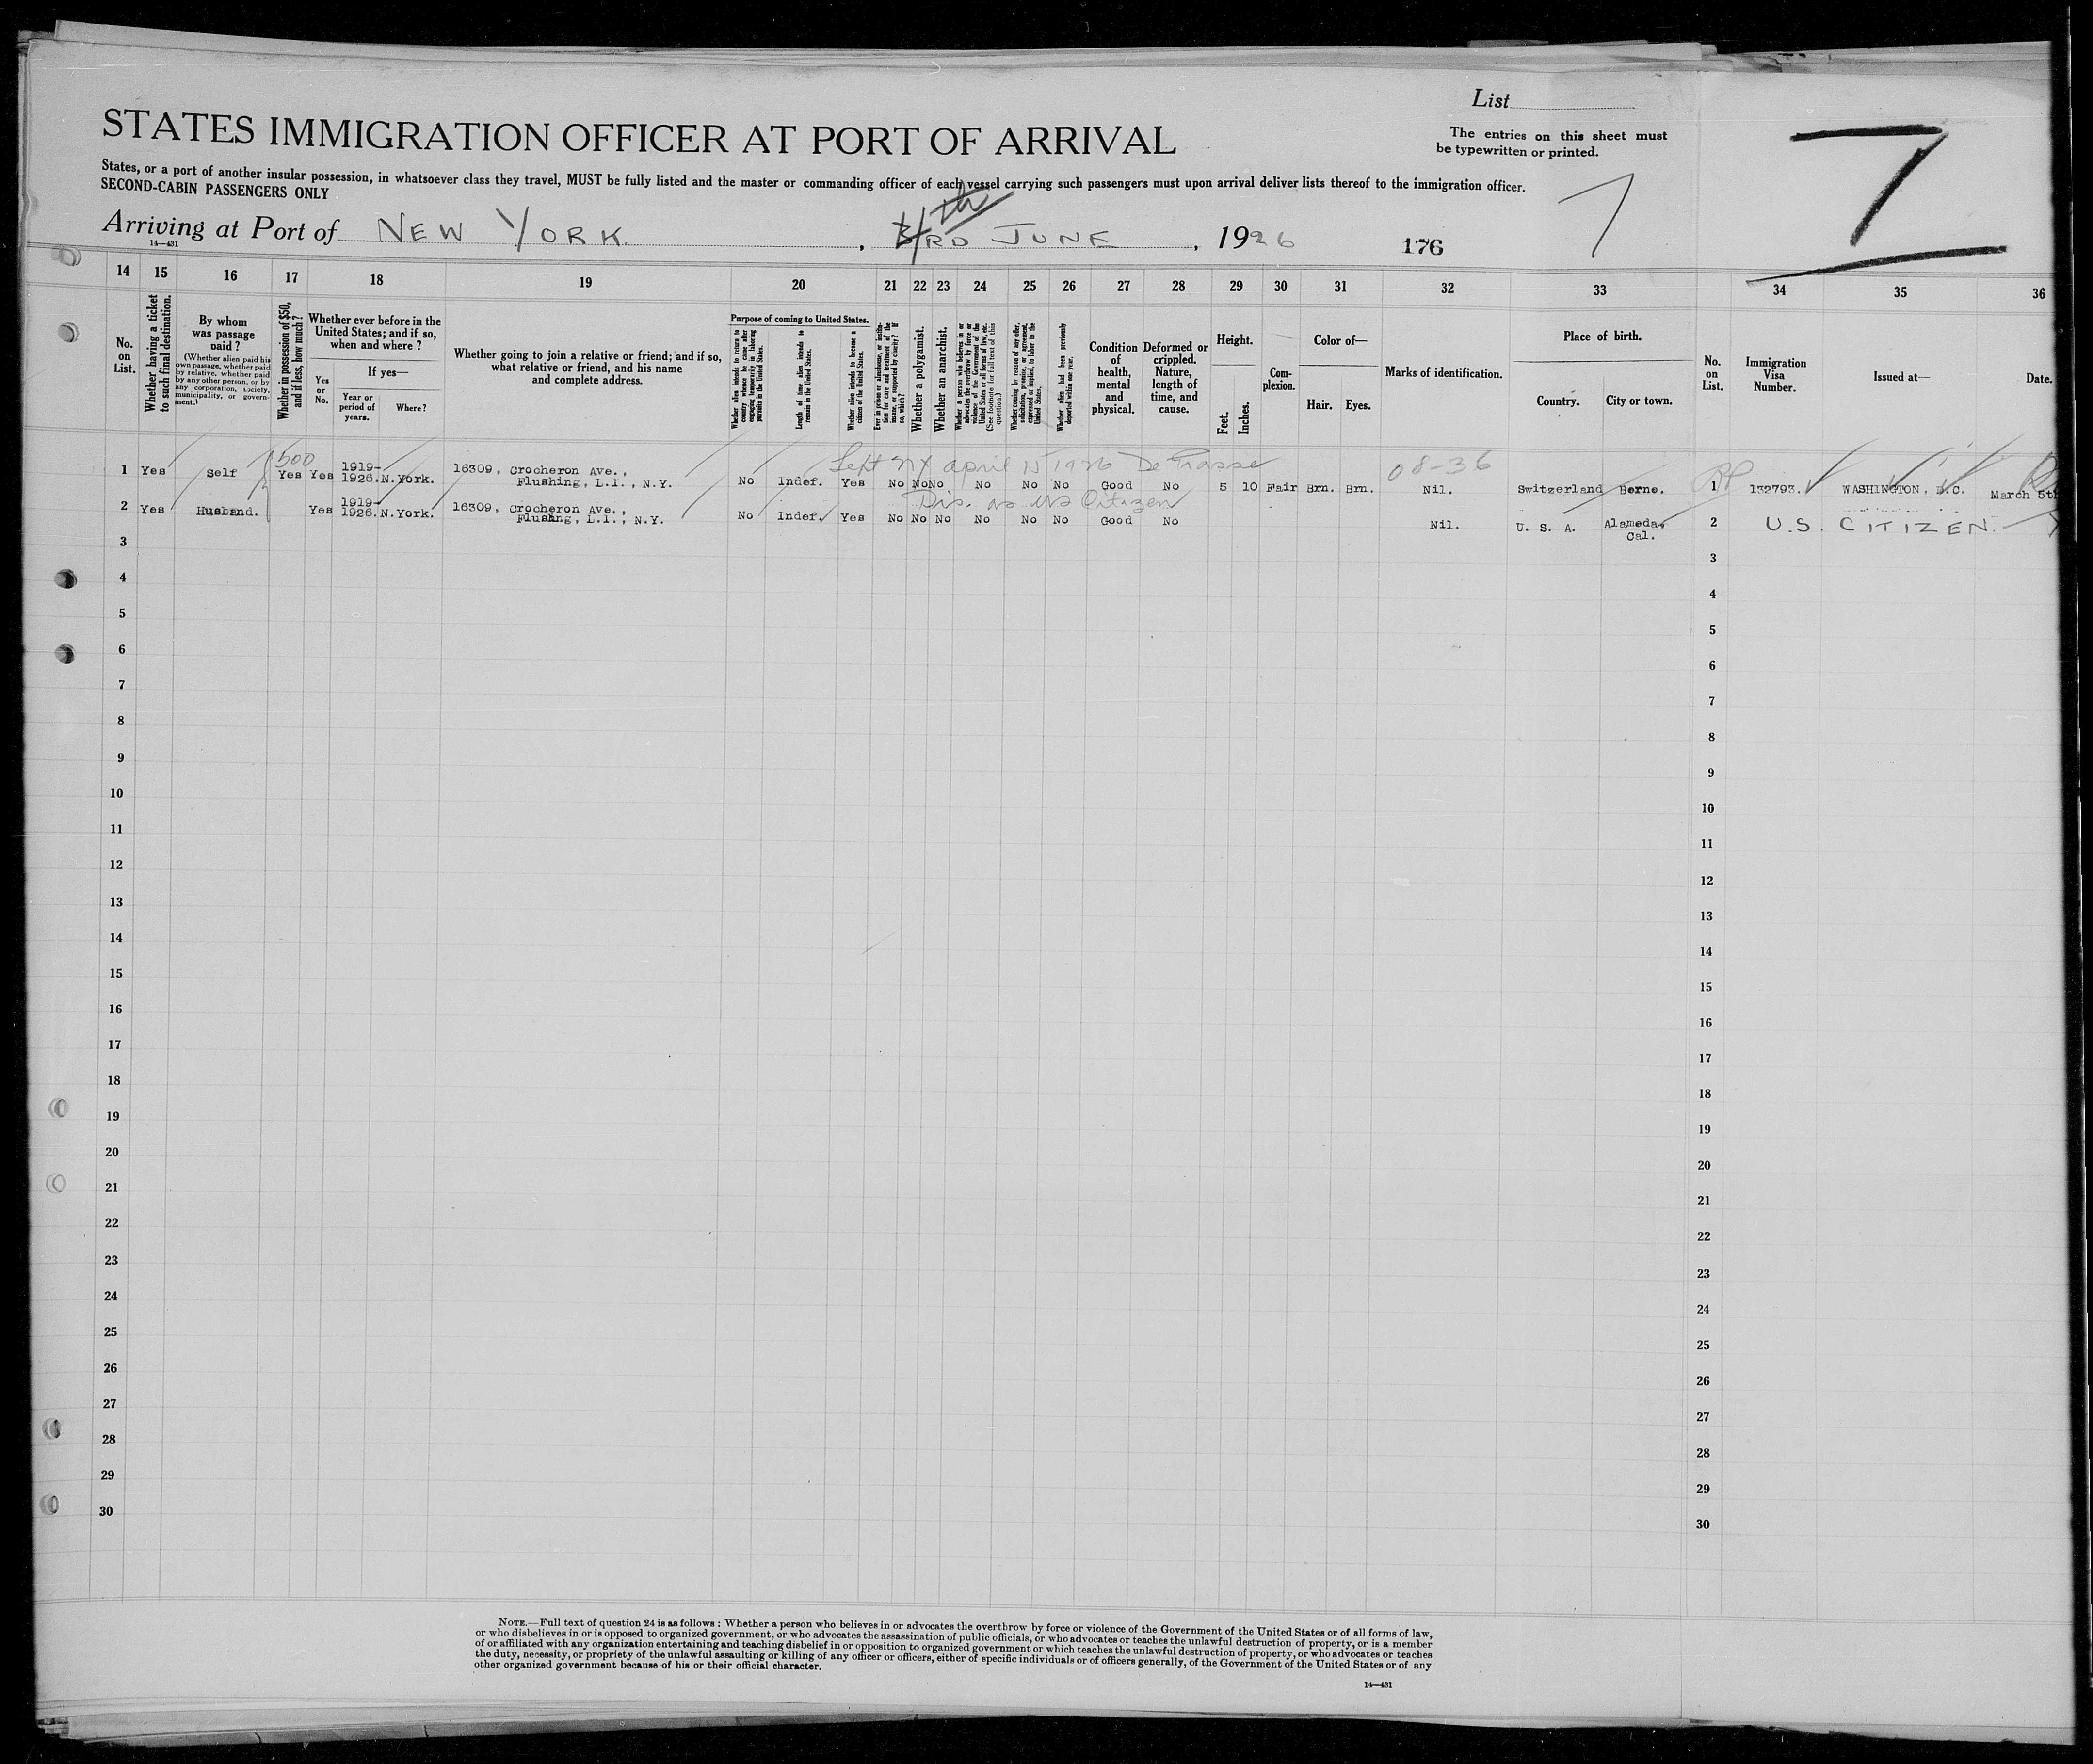 List
STATES IMMIGRATION OFFICER AT PORT OF ARRIVAL
The entries on this sheet must
be typewritten or printed.
States, or a port of another insular possession, in whatsoever class they travel, MUST be fully listed and the master or commanding officer of each vessel carrying such passengers must upon arrival deliver lists thereof to the immigration officer.
SECOND-CABIN PASSENGERS ONLY
7
7
Arriving at Port of NEW YORK, 4th 3RD JUNE, 1926 176
14—431
14 15 16 17 18 19 20 21 22 23 24 25 26 27 28 29 30 31 32 33 34 35 36
No. on List.
Whether having a ticket to such final destination.
By whom was passage paid?
(Whether alien paid his own passage, whether paid by relative, whether paid by any other person, or by any corporation, society, municipality, or government.)
Whether in possession of $50, and if less, how much?
Whether ever before in the United States; and if so, when and where?
Yes or No.
If yes—
Year or period of years.
Where?
Whether going to join a relative or friend; and if so, what relative or friend, and his name and complete address.
Purpose of coming to United States.
Whether alien intends to return to country whence he came after engaging temporarily in laboring pursuits in the United States.
Length of time alien intends to remain in the United States.
Whether alien intends to become a citizen of the United States.
Ever in prison or almshouse, or institution for care and treatment of the insane, or supported by charity? If so, which?
Whether a polygamist.
Whether an anarchist.
Whether a person who believes in or advocates the overthrow by force or violence of the Government of the United States or all forms of law, etc. (See footnote for full text of this question.)
Whether coming by reason of any offer, solicitation, promise, or agreement, expressed or implied, to labor in the United States.
Whether alien had been previously deported within one year.
Condition of health, mental and physical.
Deformed or crippled. Nature, length of time, and cause.
Height.
Feet.
Inches.
Complexion.
Color of—
Hair. Eyes.
Marks of identification.
Place of birth.
Country. City or town.
No. on List.
Immigration Visa Number.
Issued at—
Date.
500 Left NY April 15 1926 De Grasse 08-36
1 Yes Self Yes Yes 1919-1926. N.York. 16309, Crocheron Ave., Flushing, L.I., N.Y. No Indef. Yes No No No No No No Good No 5 10 Fair Brn. Brn. Nil. Switzerland Berne. 1 132793. WASHINGTON, D.C. March 5th
Dis. as US Citizen
2 Yes Husband. Yes 1919-1926. N.York. 16309, Crocheron Ave., Flushing, L.I., N.Y. No Indef. Yes No No No No No No Good No Nil. U. S. A. Alameda, Cal. 2 U.S. CITIZEN.
3 3
4 4
5 5
6 6
7 7
8 8
9 9
10 10
11 11
12 12
13 13
14 14
15 15
16 16
17 17
18 18
19 19
20 20
21 21
22 22
23 23
24 24
25 25
26 26
27 27
28 28
29 29
30 30
NOTE.—Full text of question 24 is as follows: Whether a person who believes in or advocates the overthrow by force or violence of the Government of the United States or of all forms of law,
or who disbelieves in or is opposed to organized government, or who advocates the assassination of public officials, or who advocates or teaches the unlawful destruction of property, or is a member
of or affiliated with any organization entertaining and teaching disbelief in or opposition to organized government or which teaches the unlawful destruction of property, or who advocates or teaches
the duty, necessity, or propriety of the unlawful assaulting or killing of any officer or officers, either of specific individuals or of officers generally, of the Government of the United States or of any
other organized government because of his or their official character.
14—431